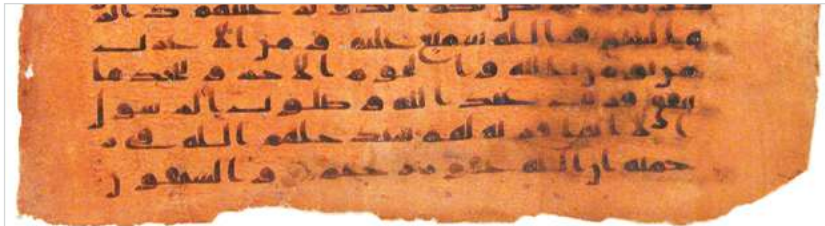 ه السو والله سميع عليم ومن الا عرب
من يومن بالله واليوم الاخر و يتخذ ما
ينفق قربت عند الله و صلوت الرسول
الا انها قربه لهم سيدخلهم الله في ر
حمته ان الله غفور رحيم والسبقو ن